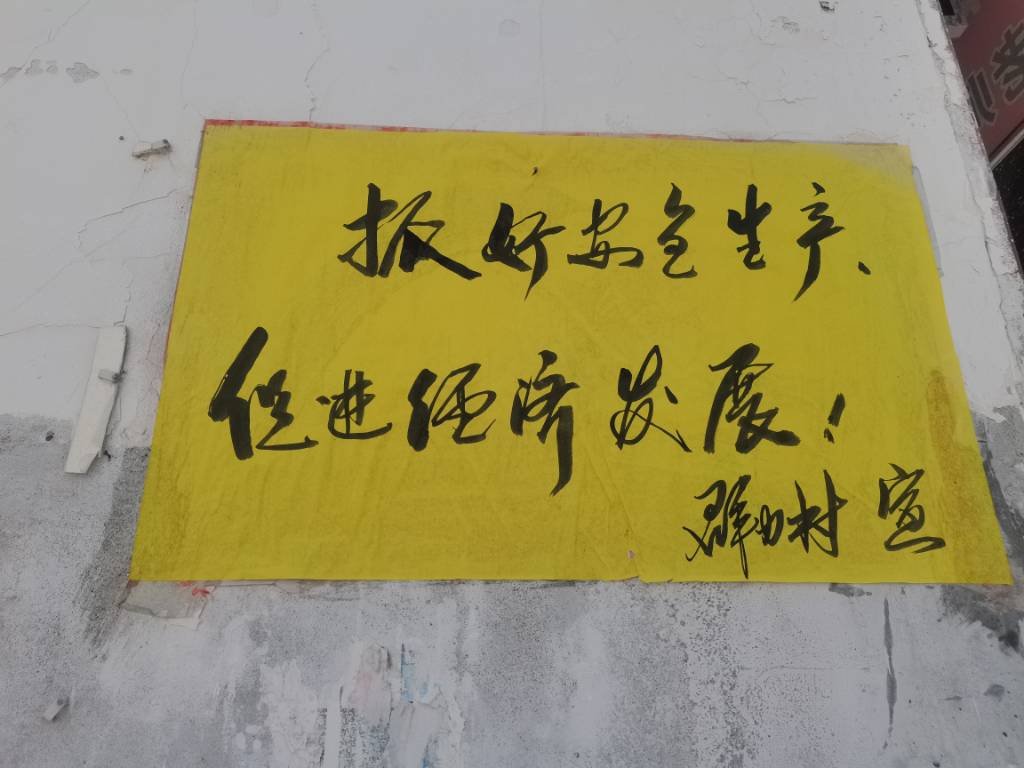 抓好安全生产、
促进经济发展！
群力村 宣